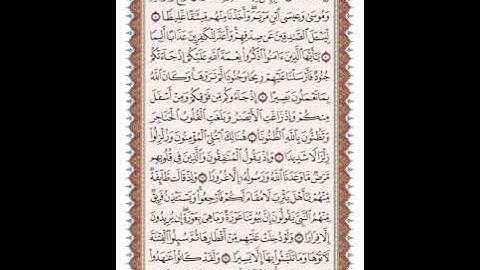 وَمُوسَىٰ وَعِيسَى ٱبْنِ مَرْيَمَ ۖ وَأَخَذْنَا مِنْهُم مِّيثَٰقًا غَلِيظًا
لِّيَسْـَٔلَ ٱلصَّٰدِقِينَ عَن صِدْقِهِمْ ۚ وَأَعَدَّ لِلْكَٰفِرِينَ عَذَابًا أَلِيمًا
يَٰٓأَيُّهَا ٱلَّذِينَ ءَامَنُوا۟ ٱذْكُرُوا۟ نِعْمَةَ ٱللَّهِ عَلَيْكُمْ إِذْ جَآءَتْكُمْ
جُنُودٌ فَأَرْسَلْنَا عَلَيْهِمْ رِيحًا وَجُنُودًا لَّمْ تَرَوْهَا ۚ وَكَانَ ٱللَّهُ
بِمَا تَعْمَلُونَ بَصِيرًا إِذْ جَآءُوكُم مِّن فَوْقِكُمْ وَمِنْ أَسْفَلَ
مِنكُمْ وَإِذْ زَاغَتِ ٱلْأَبْصَٰرُ وَبَلَغَتِ ٱلْقُلُوبُ ٱلْحَنَاجِرَ
وَتَظُنُّونَ بِٱللَّهِ ٱلظُّنُونَا۠ هُنَالِكَ ٱبْتُلِىَ ٱلْمُؤْمِنُونَ وَزُلْزِلُوا۟
زِلْزَالًا شَدِيدًا وَإِذْ يَقُولُ ٱلْمُنَٰفِقُونَ وَٱلَّذِينَ فِى قُلُوبِهِم
مَّرَضٌ مَّا وَعَدَنَا ٱللَّهُ وَرَسُولُهُۥٓ إِلَّا غُرُورًا وَإِذْ قَالَت طَّآئِفَةٌ
مِّنْهُمْ يَٰٓأَهْلَ يَثْرِبَ لَا مُقَامَ لَكُمْ فَٱرْجِعُوا۟ ۚ وَيَسْتَـْٔذِنُ فَرِيقٌ
مِّنْهُمُ ٱلنَّبِىَّ يَقُولُونَ إِنَّ بُيُوتَنَا عَوْرَةٌ وَمَا هِىَ بِعَوْرَةٍ ۖ إِن يُرِيدُونَ
إِلَّا فِرَارًا وَلَوْ دُخِلَتْ عَلَيْهِم مِّنْ أَقْطَارِهَا ثُمَّ سُئِلُوا۟ ٱلْفِتْنَةَ
لَءَاتَوْهَا وَمَا تَلَبَّثُوا۟ بِهَآ إِلَّا يَسِيرًا وَلَقَدْ كَانُوا۟ عَٰهَدُوا۟